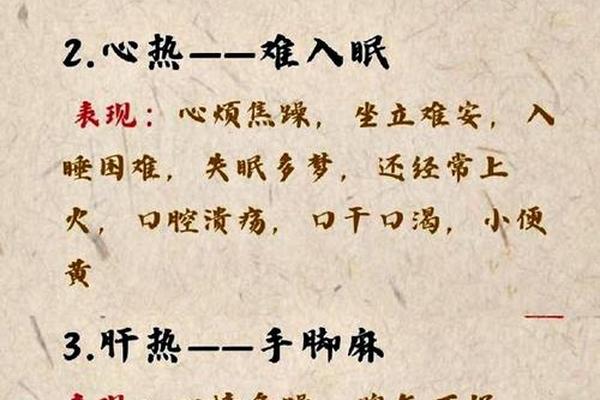 2.心热——难入眠
表现：心烦焦躁，坐立难安，入
睡困难，失眠多梦，还经常上
火，口腔溃疡，口干口渴，小便
黄
3.肝热——手脚麻